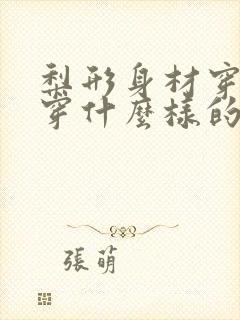 梨形身材穿
穿什麼樣的
張萌